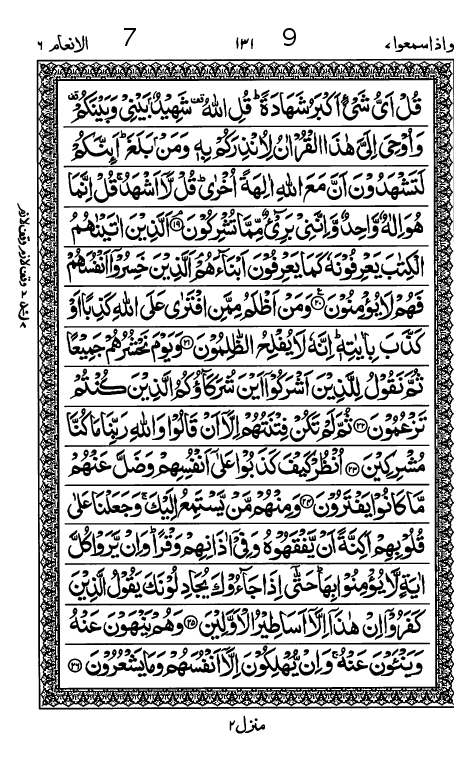 واذا سمعوا ۷ 9 ۱۳۱ 7 الانعام ۶
قُلْ اَىُّ شَىْءٍ اَكْبَرُ شَهَادَةً ؕ قُلِ اللّٰهُ ۟ۙ شَهِيْدٌۢ بَيْنِىْ وَبَيْنَكُمْ ۟
وَاُوْحِىَ اِلَىَّ هٰذَا الْقُرْاٰنُ لِاُنْذِرَكُمْ بِهٖ وَمَنْۢ بَلَغَ ؕ اَئِنَّكُمْ
لَتَشْهَدُوْنَ اَنَّ مَعَ اللّٰهِ اٰلِهَةً اُخْرٰى ؕ قُلْ لَّاۤ اَشْهَدُ ۚ قُلْ اِنَّمَا
هُوَ اِلٰهٌ وَّاحِدٌ وَّاِنَّنِىْ بَرِىْٓءٌ مِّمَّا تُشْرِكُوْنَ ۘ‏﴿۱۹﴾ اَلَّذِيْنَ اٰتَيْنٰهُمُ
الْكِتٰبَ يَعْرِفُوْنَهٗ كَمَا يَعْرِفُوْنَ اَبْنَآءَهُمْ ۘ اَلَّذِيْنَ خَسِرُوْۤا اَنْفُسَهُمْ
فَهُمْ لَا يُؤْمِنُوْنَ ﴿۲۰﴾ وَمَنْ اَظْلَمُ مِمَّنِ افْتَرٰى عَلَى اللّٰهِ كَذِبًا اَوْ
كَذَّبَ بِاٰيٰتِهٖ ؕ اِنَّهٗ لَا يُفْلِحُ الظّٰلِمُوْنَ ﴿۲۱﴾ وَيَوْمَ نَحْشُرُهُمْ جَمِيْعًا
ثُمَّ نَقُوْلُ لِلَّذِيْنَ اَشْرَكُوْۤا اَيْنَ شُرَكَآؤُكُمُ الَّذِيْنَ كُنْتُمْ
تَزْعُمُوْنَ ﴿۲۲﴾ ثُمَّ لَمْ تَكُنْ فِتْنَتُهُمْ اِلَّاۤ اَنْ قَالُوْا وَاللّٰهِ رَبِّنَا مَا كُنَّا
مُشْرِكِيْنَ ﴿۲۳﴾ اُنْظُرْ كَيْفَ كَذَبُوْا عَلٰٓى اَنْفُسِهِمْ وَضَلَّ عَنْهُمْ
مَّا كَانُوْا يَفْتَرُوْنَ ﴿۲۴﴾ وَمِنْهُمْ مَّنْ يَّسْتَمِعُ اِلَيْكَ ۚ وَجَعَلْنَا عَلٰى
قُلُوْبِهِمْ اَكِنَّةً اَنْ يَّفْقَهُوْهُ وَفِىْۤ اٰذَانِهِمْ وَقْرًا ؕ وَاِنْ يَّرَوْا كُلَّ
اٰيَةٍ لَّا يُؤْمِنُوْا بِهَا ؕ حَتّٰۤى اِذَا جَآءُوْكَ يُجَادِلُوْنَكَ يَقُوْلُ الَّذِيْنَ
كَفَرُوْۤا اِنْ هٰذَاۤ اِلَّاۤ اَسَاطِيْرُ الْاَوَّلِيْنَ ﴿۲۵﴾ وَهُمْ يَنْهَوْنَ عَنْهُ
وَيَنْئَوْنَ عَنْهُ ۚ وَاِنْ يُّهْلِكُوْنَ اِلَّاۤ اَنْفُسَهُمْ وَمَا يَشْعُرُوْنَ ﴿۲۶﴾
منزل ۲